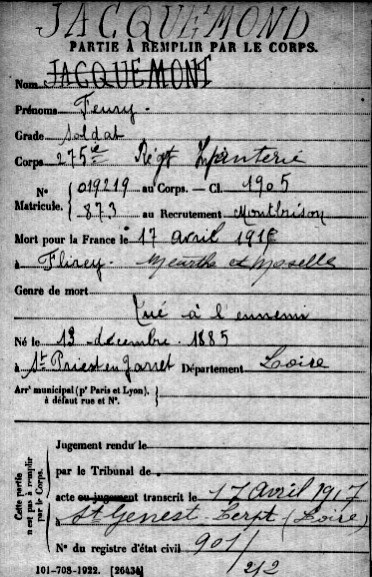 JACQUEMOND
PARTIE À REMPLIR PAR LE CORPS.
Nom JACQUEMONT
Prénoms Feury
Grade Soldat
Corps 275e Régt Infanterie
N° 019219 au Corps. — Cl. 1905
Matricule. 873 au Recrutement Montbrison
Mort pour la France le 17 avril 191
à Flirey. Meurthe et Moselle
Genre de mort
Tué à l'ennemi
Né le 13 décembre 1885
à St Priest en Jarret Département Loire
Arr' municipal (p' Paris et Lyon).
à défaut rue et N°.
Cette partie n'est pas à remplir par le Corps.
Jugement rendu le
par le Tribunal de
acte ou jugement transcrit le 17 avril 1917
à St Genest Lerpt (Loire)
N° du registre d'état civil 901/
212
101-708-1922. [26434]